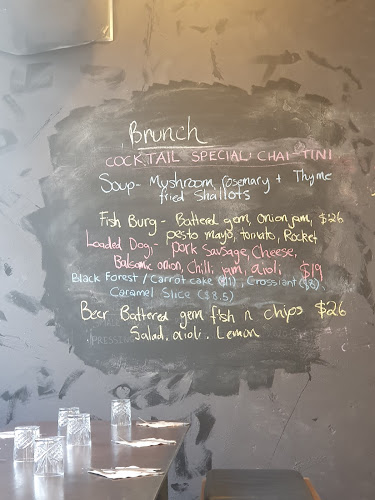 Brunch
COCKTAIL SPECIAL: CHAI-TINI
Soup - Mushroom, rosemary + Thyme
fried Shallots
Fish Burg - Battered gem, Onion jam, $26
pesto mayo, tomato, Rocket
Loaded Dog:- pork Sausage, Cheese,
Balsamic onion, Chilli jam, aioli $19
Black Forest / Carrot cake ($11), Crossiant ($8)
Caramel Slice ($8.5)
Beer Battered gem fish n chips $26
Salad, aioli, Lemon